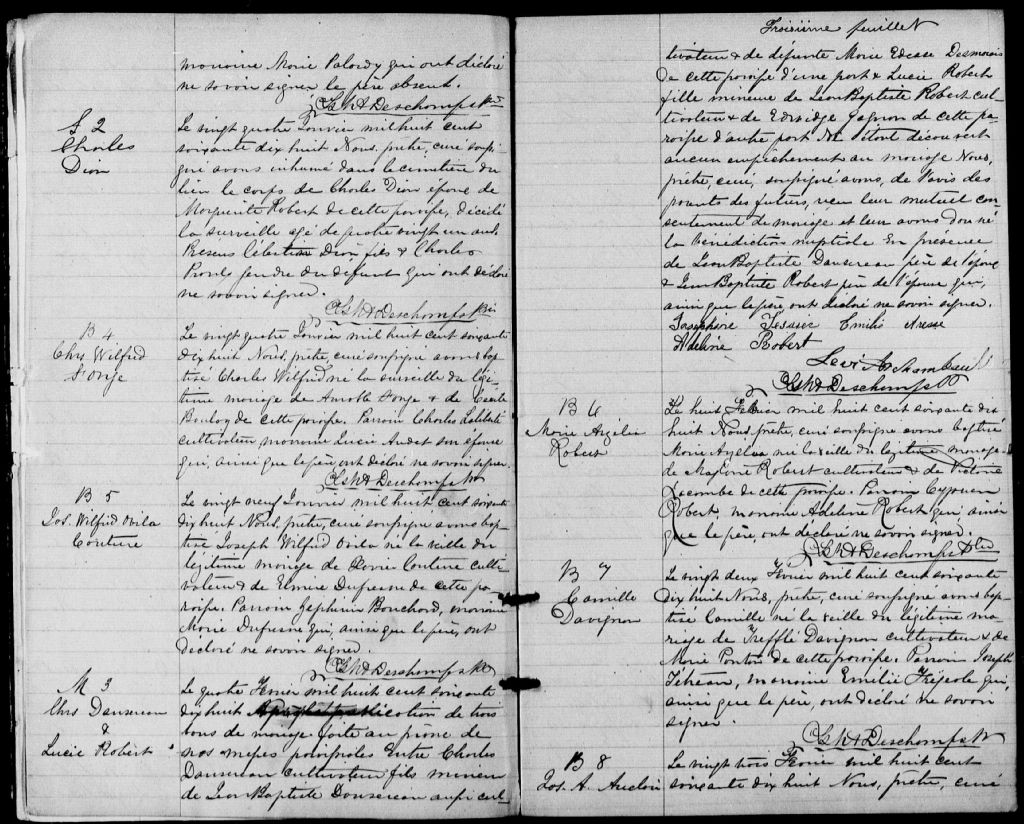 marraine Marie Palardy qui ont déclaré
ne savoir signer le père absent.
G.S.A. Deschamps
S 2
Charles
Dion
Le vingt quatre Janvier mil huit cent
soixante dix huit Nous, prêtre, curé soussi-
gné avons inhumé dans le cimetière du
lieu le corps de Charles Dion époux de
Marguerite Robert de cette paroisse, décédé
la surveille agé de quatre vingt un ans.
Présens Célestin Dion fils & Charles
gendre du défunt qui ont déclaré
ne savoir signer.
Deschamps
B 4
Chrs Wilfrid
Le vingt quatre Janvier mil huit cent soixante
dix huit Nous, prêtre, curé soussigné avons bap-
tisé Charles Wilfrid né la surveille du légi-
time mariage de & de Cécile
de cette paroisse. Parrain Charles Laliberté
cultivateur marraine Lucie Audet son épouse
qui, ainsi que le père ont déclaré ne savoir signer.
Deschamps
B 5
Jos. Wilfrid Ovila
Couture
Le vingt neuf Janvier mil huit cent soixante
dix huit Nous, prêtre, curé soussigné avons bap-
tisé Joseph Wilfrid Ovila né la veille du
légitime mariage de Xavier Couture culti-
vateur & de Elmire Dufresne de cette pa-
roisse. Parrain Zephirin Bouchard, marraine
Marie Dufresne qui, ainsi que le père, ont
déclaré ne savoir signer.
Deschamps
M 3
Chrs Dansereau
&
Lucie Robert
Le quatre Fevrier mil huit cent soixante
dix huit publication de trois
bans de mariage faite au prône de
nos messes paroissiales Entre Charles
Dansereau cultivateur fils mineur
de Jean Baptiste Dansereau aussi cul-
Troisième feuillet
tivateur & de défunte Marie Desmarais
de cette paroisse d'une part & Lucie Robert
fille mineure de Jean Baptiste Robert cul-
tivateur & de Edwidge Gagnon de cette pa-
roisse d'autre part Ne s'étant découvert
aucun empêchement au mariage Nous,
prêtre, curé, soussigné avons, de l'avis des
parents des futurs, reçu leur mutuel con-
sentement de mariage et leur avons donné
la bénédiction nuptiale En présence
de Jean Baptiste Dansereau père de l'époux
& Jean Baptiste Robert père de l'épouse qui,
ainsi que le père ont déclaré ne savoir signer.
Josephine Tessier Emilie
Adeline Robert
Levi Archambault
Deschamps
B 6
Marie Azelia
Robert
Le huit Fevrier mil huit cent soixante dix
huit Nous, prêtre, curé soussigné avons baptisé
Marie Azelia née la veille du légitime mariage
de Magloire Robert cultivateur & de Victoire
Lacombe de cette paroisse. Parrain Cyprien
Robert, marraine Adeline Robert qui ainsi
que le père, ont déclaré ne savoir signer.
Deschamps
B 7
Camille
Davignon
Le vingt deux Fevrier mil huit cent soixante
dix huit Nous, prêtre, curé soussigné avons bap-
tisé Camille né la veille du légitime ma-
riage de Trefflé Davignon cultivateur & de
Marie Ponton de cette paroisse. Parrain Joseph
Tétreau, marraine Emilie qui,
ainsi que le père, ont déclaré ne savoir
signer.
Deschamps
B 8
Jos. A. Auclair
Le vingt trois Fevrier mil huit cent
soixante dix huit Nous, prêtre, curé